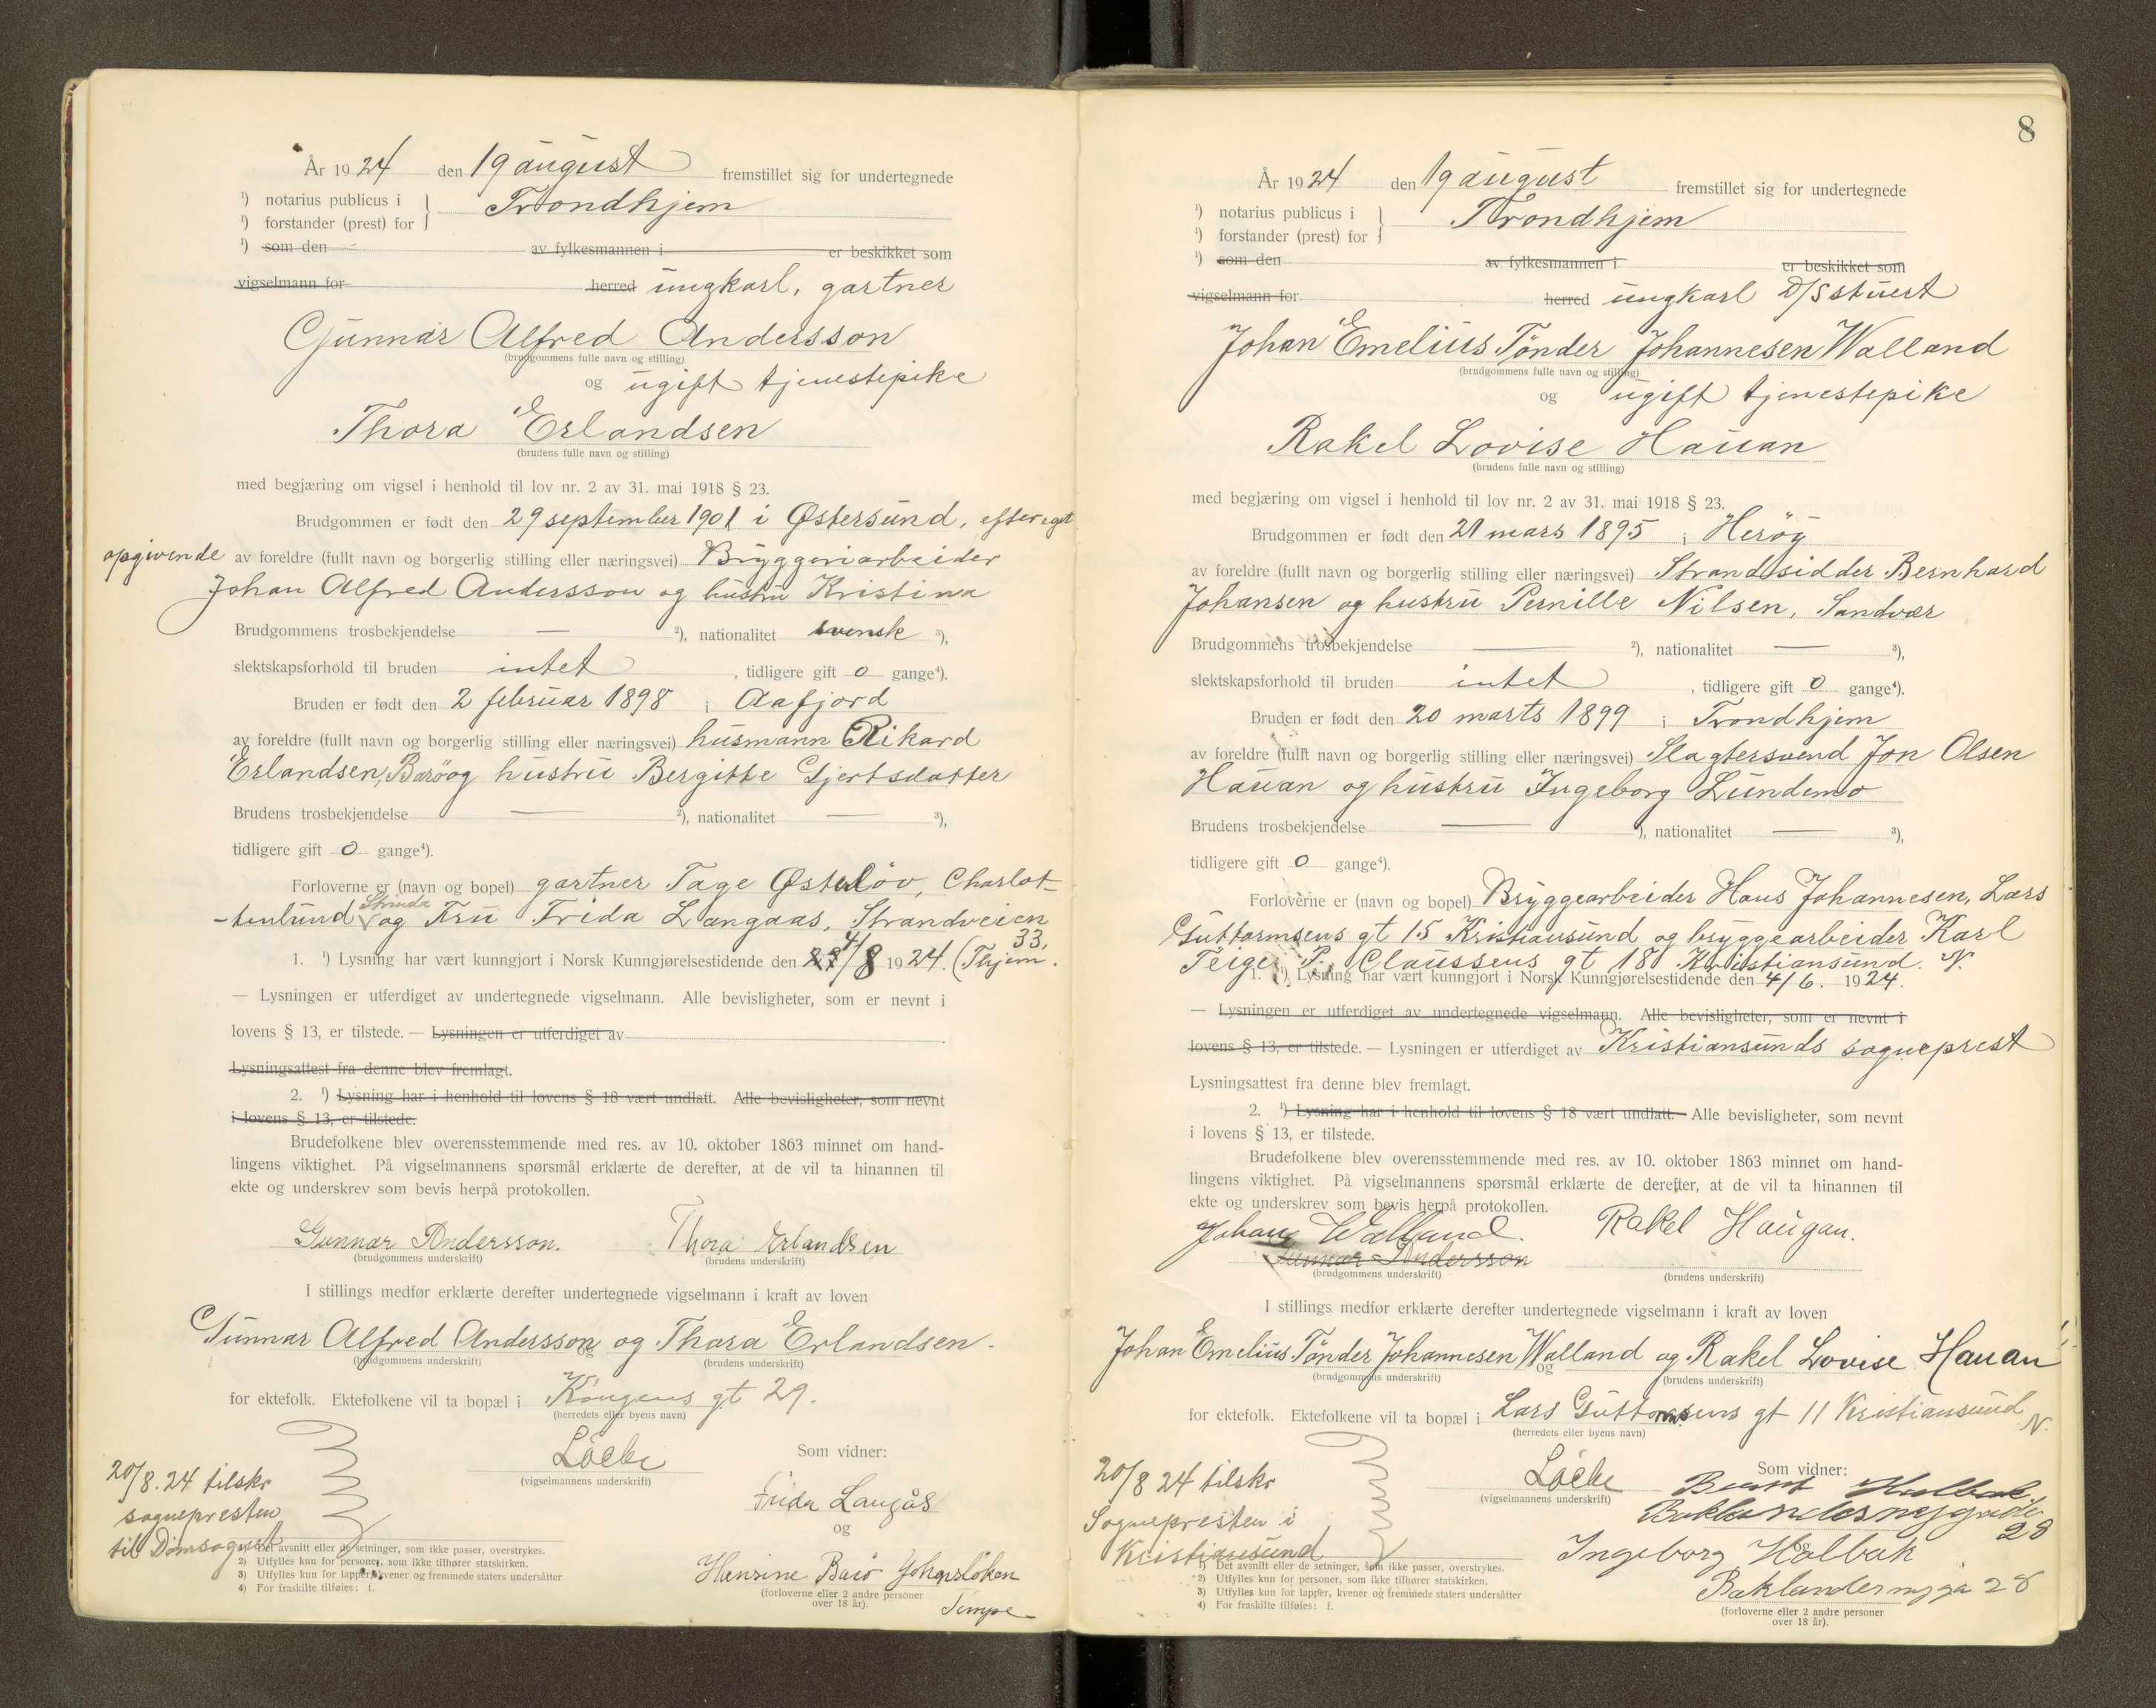 År 1924 den 19 august fremstillet sig for undertegnede
¹) notarius publicus i
¹) forstander (prest) for } Trondhjem
¹) som den av fylkesmannen i er beskikket som
vigselmann for herred ungkarl, gartner
Gunnar Alfred Andersson
(brudgommens fulle navn og stilling)
og ugift tjenestepike
Thora Erlandsen
(brudens fulle navn og stilling)
med begjæring om vigsel i henhold til lov nr. 2 av 31. mai 1918 § 23.
Brudgommen er født den 29 september 1901 i Østersund, efter eget
opgivende av foreldre (fullt navn og borgerlig stilling eller næringsvei) Bryggeriarbeider
Johan Alfred Andersson og hustru Kristina
Brudgommens trosbekjendelse — ²), nationalitet svensk ³),
slektskapsforhold til bruden intet , tidligere gift 0 gange⁴).
Bruden er født den 2 februar 1898 i Aafjord
av foreldre (fullt navn og borgerlig stilling eller næringsvei) husmann Rikard
Erlandsen, Barø og hustru Bergitte Gjertsdatter
Brudens trosbekjendelse — ²), nationalitet — ³),
tidligere gift 0 gange⁴).
Forloverne er (navn og bopel) gartner Tage Østerlöv, Charlot-
Strinda
-tenlund og Fru Frida Langaas, Strandveien
33,
1. ¹) Lysning har vært kunngjort i Norsk Kunngjørelsestidende den 4/8 1924. (Thjem.
— Lysningen er utferdiget av undertegnede vigselmann. Alle bevisligheter, som er nevnt i
lovens § 13, er tilstede. — Lysningen er utferdiget av
Lysningsattest fra denne blev fremlagt.
2. ¹) Lysning har i henhold til lovens § 18 vært undlatt. Alle bevisligheter, som nevnt
i lovens § 13, er tilstede.
Brudefolkene blev overensstemmende med res. av 10. oktober 1863 minnet om hand-
lingens viktighet. På vigselmannens spørsmål erklærte de derefter, at de vil ta hinannen til
ekte og underskrev som bevis herpå protokollen.
Gunnar Andersson. Thora Erlandsen
(brudgommens underskrift) (brudens underskrift)
I stillings medfør erklærte derefter undertegnede vigselmann i kraft av loven
Gunnar Alfred Andersson og Thora Erlandsen.
(brudgommens underskrift) og (brudens underskrift)
for ektefolk. Ektefolkene vil ta bopæl i Kongens gt 29.
(herredets eller byens navn)
Löcke Som vidner:
(vigselmannens underskrift)
20/8.24 tilskr
sognepresten
til Domsognet
Frida Langås
og
Henrine Barø Johnsløken
Tempe
(forloverne eller 2 andre personer
over 18 år).
¹) Det avsnitt eller de setninger, som ikke passer, overstrykes.
2) Utfylles kun for personer, som ikke tilhører statskirken.
3) Utfylles kun for lapper, kvener og fremmede staters undersåtter
4) For fraskilte tilføies: f.
8
År 1924 den 19 august fremstillet sig for undertegnede
¹) notarius publicus i
¹) forstander (prest) for } Trondhjem
¹) som den av fylkesmannen i er beskikket som
vigselmann for herred ungkarl D/S stuert
Johan Emelius Tønder Johannesen Walland
(brudgommens fulle navn og stilling)
og ugift tjenestepike
Rakel Lovise Hauan
(brudens fulle navn og stilling)
med begjæring om vigsel i henhold til lov nr. 2 av 31. mai 1918 § 23.
Brudgommen er født den 21 mars 1895 i Herøy
av foreldre (fullt navn og borgerlig stilling eller næringsvei) Strandsidder Bernhard
Johansen og hustru Pernille Nilsen, Sandvær
Brudgommens trosbekjendelse — ²), nationalitet — ³),
slektskapsforhold til bruden intet , tidligere gift 0 gange⁴).
Bruden er født den 20 marts 1899 i Trondhjem
av foreldre (fullt navn og borgerlig stilling eller næringsvei) Slagtersvend Jon Olsen
Hauan og hustru Ingeborg Lundemo
Brudens trosbekjendelse — ²), nationalitet — ³),
tidligere gift 0 gange⁴).
Forloverne er (navn og bopel) Bryggearbeider Hans Johannesen, Lars
Guttormsens gt 15 Kristiansund og bryggearbeider Karl
Teige P. Claussens gt 18 Kristiansund. N.
1. ¹) Lysning har vært kunngjort i Norsk Kunngjørelsestidende den 4/6. 1924.
— Lysningen er utferdiget av undertegnede vigselmann. Alle bevisligheter, som er nevnt i
lovens § 13, er tilstede. — Lysningen er utferdiget av Kristiansunds sogneprest
Lysningsattest fra denne blev fremlagt.
2. ¹) Lysning har i henhold til lovens § 18 vært undlatt. Alle bevisligheter, som nevnt
i lovens § 13, er tilstede.
Brudefolkene blev overensstemmende med res. av 10. oktober 1863 minnet om hand-
lingens viktighet. På vigselmannens spørsmål erklærte de derefter, at de vil ta hinannen til
ekte og underskrev som bevis herpå protokollen.
Johan Walland. Rakel Haugan.
Gunnar Andersson
(brudgommens underskrift) (brudens underskrift)
I stillings medfør erklærte derefter undertegnede vigselmann i kraft av loven
Johan Emelius Tønder Johannesen Walland og Rakel Lovise Hauan
(brudgommens underskrift) og (brudens underskrift)
for ektefolk. Ektefolkene vil ta bopæl i Lars Guttormsens gt 11 Kristiansund
N.
(herredets eller byens navn)
Löcke Som vidner:
(vigselmannens underskrift)
20/8 24 tilskr
Sognepresten i
Kristiansund
Holbak
Baklandesnygade
28
og
Ingeborg Holbak
Baklandernyga 28
(forloverne eller 2 andre personer
over 18 år).
¹) Det avsnitt eller de setninger, som ikke passer, overstrykes.
2) Utfylles kun for personer, som ikke tilhører statskirken.
3) Utfylles kun for lapper, kvener og fremmede staters undersåtter
4) For fraskilte tilføies: f.